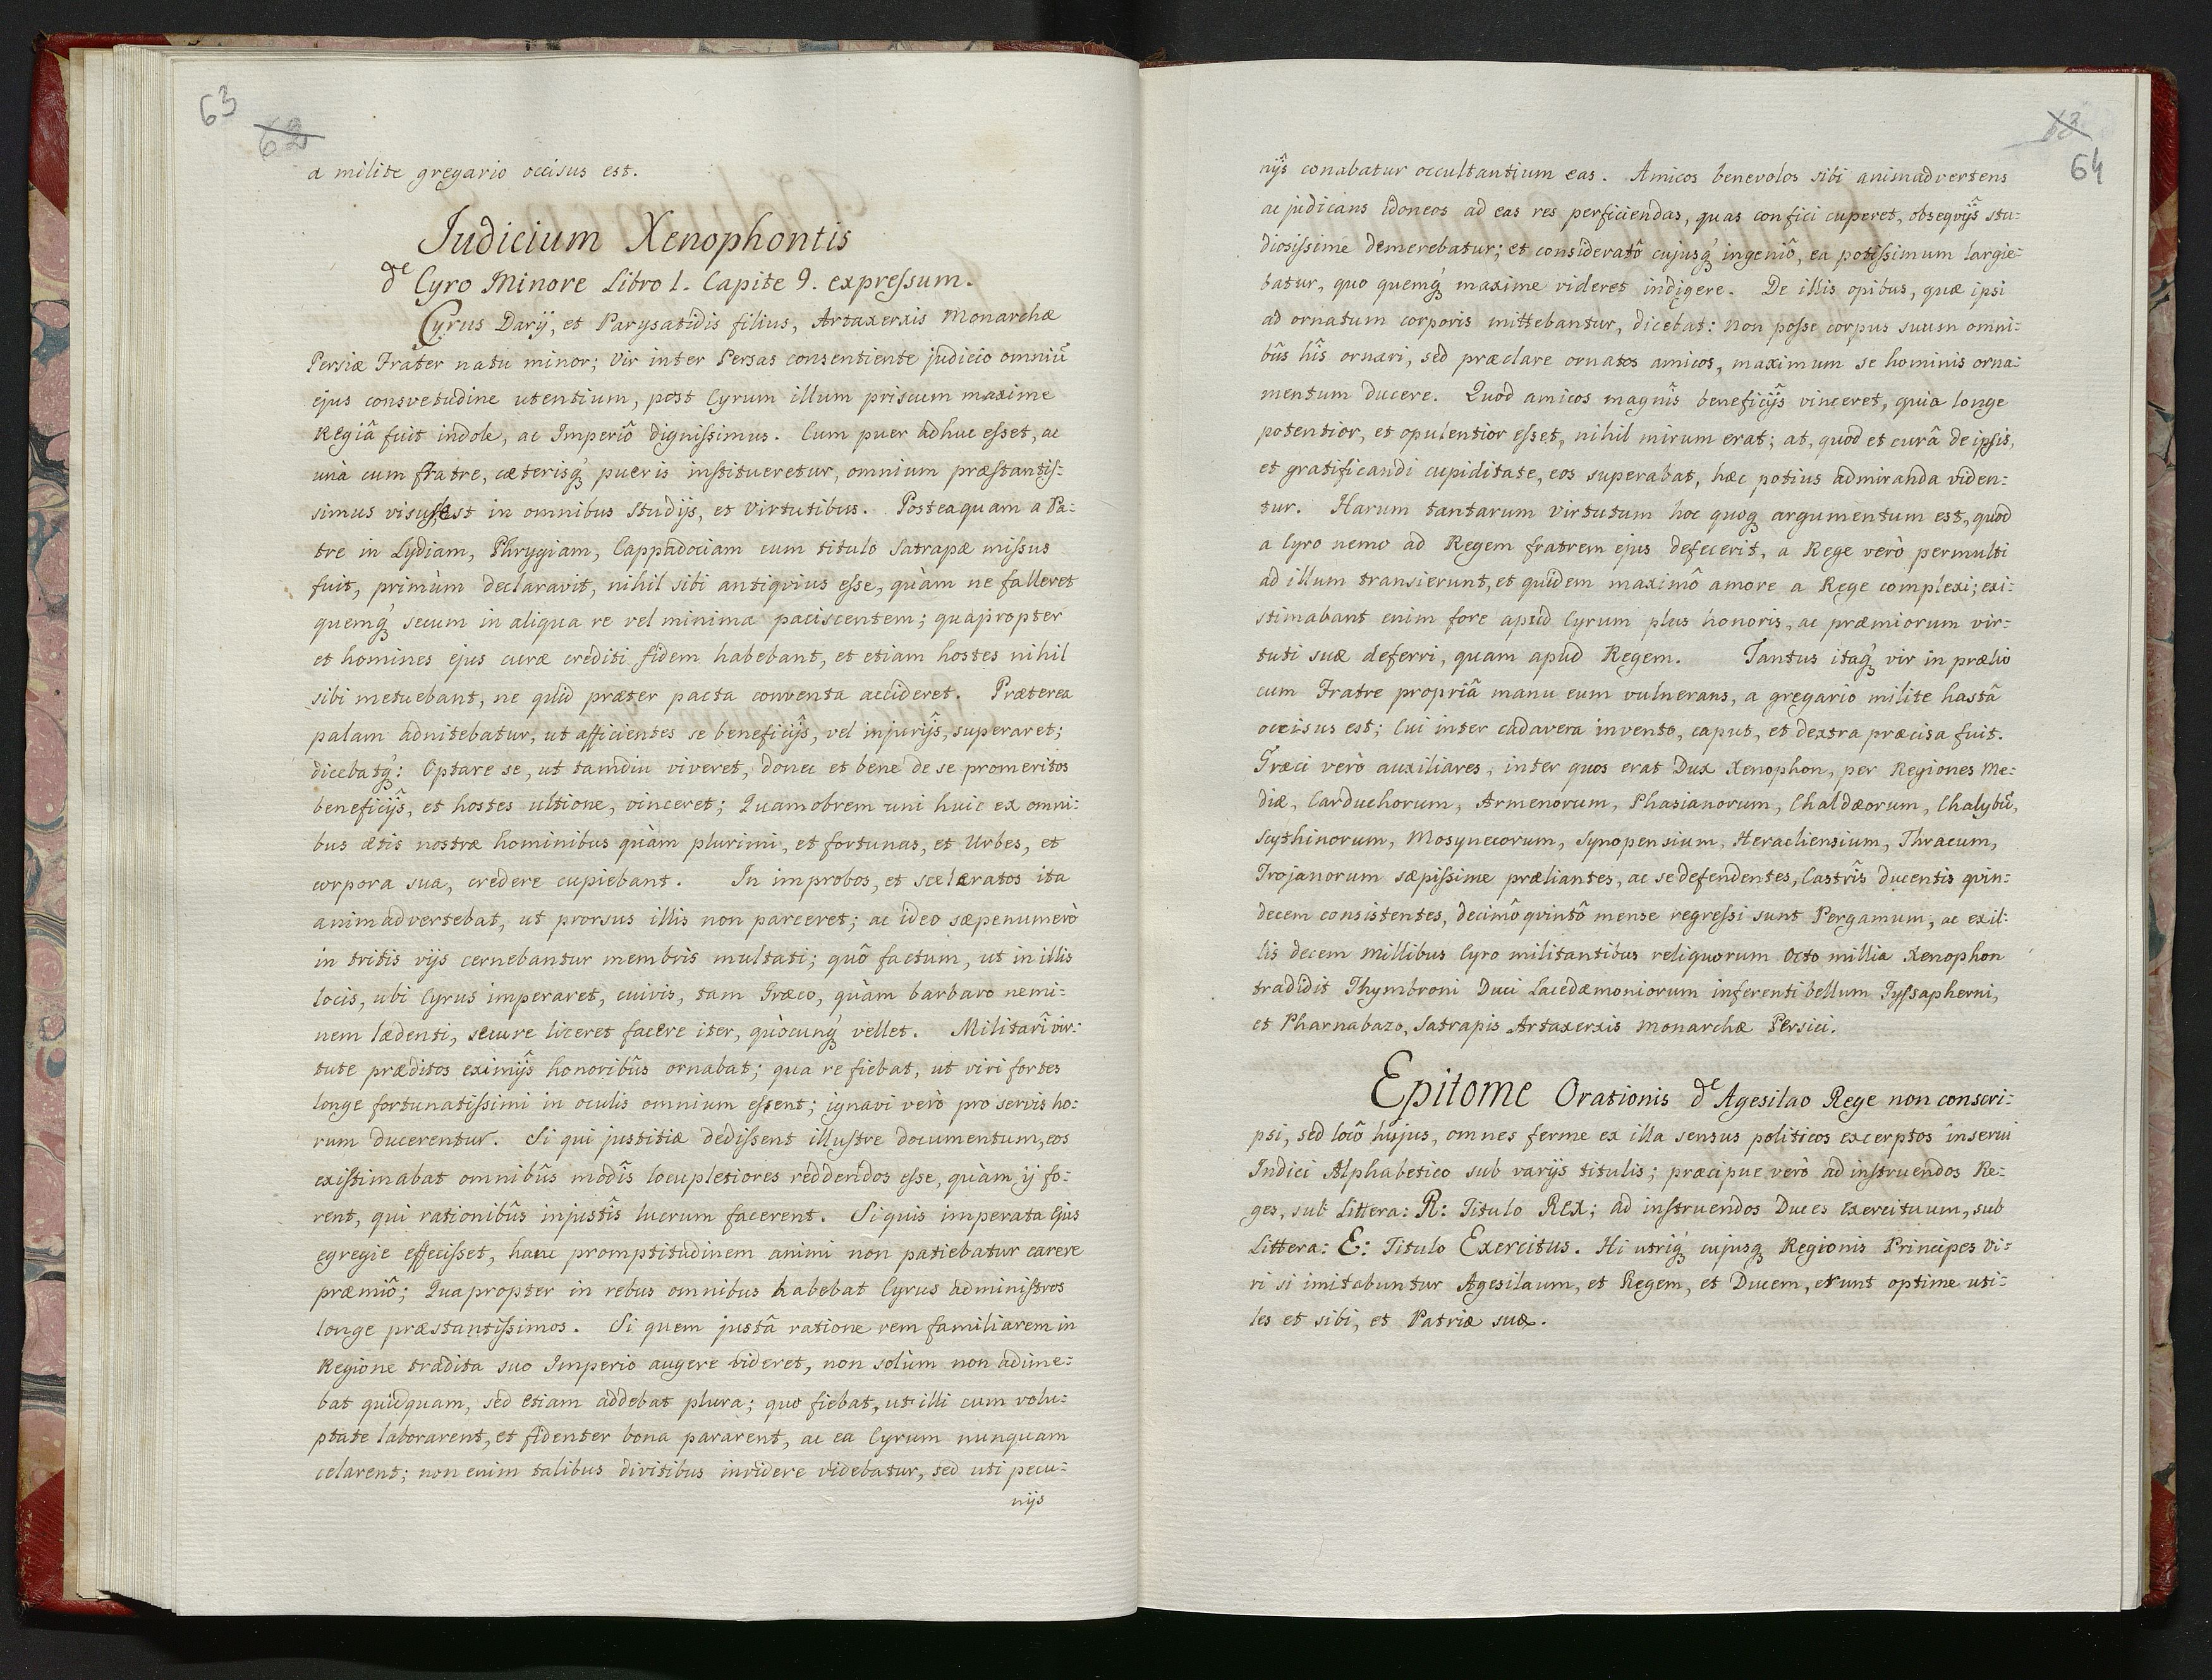 63
62
a milite gregario occisus est.
Judicium Xenophontis
de Cyro Minore Libro 1. Capite 9. expressum.
Cyrus Darij, et Parysatidis filius, Artaxerxis Monarchæ
Persiæ Frater natu minor; Vir inter Persas consentiente judicio omniũ
ejus consvetudine utentium, post Cyrum illum priscum maxime
Regiâ fuit indole, ac Imperiô dignissimus. Cum puer adhuc esset, ac
unà cum fratre, cæterisq́ pueris institueretur, omnium præstantis:
simus visus est in omnibus Studijs, et Virtutibus. Posteaquam a Pa:
tre in Lydiam, Phrygiam, Cappadociam cum titulo Satrapæ missus
fuit, primùm declaravit, nihil sibi antiqvius esse, quàm ne falleret
quemq́ secum in aliqua re vel minima paciscentem; quapropter
et homines ejus curæ crediti fidem habebant, et etiam hostes nihil
sibi metuebant, ne quid præter pacta conventa accideret. Præterea
palam adnitebatur, ut afficientes se beneficijŝ, vel injurijŝ, superaret;
dicebatq́: Optare se, ut tamdiu viveret, donec et bene de se promeritos
beneficijŝ, et hostes ultione, vinceret; Quamobrem uni huic ex omni:
bus ætis nostræ hominibus quàm plurimi, et fortunas, et Urbes, et
corpora sua, credere cupiebant. In improbos, et sceleratos ita
animadvertebat, ut prorsus illis non parceret; ac ideo sæpenumerò
in tritis vijs cernebantur membris multati; quô factum, ut in illis
locis, ubi Cyrus imperaret, cuivis, tam Græco, quàm barbaro nemi:
nem lædenti, secure liceret facere iter, quòcunq́ vellet. Militarî vir:
tute præditos eximijŝ honoribûs ornabat; qua re fiebat, ut viri fortes
longe fortunatissimi in oculis omnium essent; ignavi verò pro servis ho:
rum ducerentur. Si qui justitiæ dedissent illustre documentum, eos
existimabat omnibûs modîs locupletiores reddendos esse, quàm ij fo:
rent, qui rationibûs injustîs lucrum facerent. Siquis imperata Ejus
egregie effecisset, hanc promptitudinem animi non patiebatur carere
præmiô; Quapropter in rebus omnibus habebat Cyrus administros
longe præstantissimos. Si quem justâ ratione rem familiarem in
Regione tradita suo Imperio augere videret, non solùm non adime:
bat quidquam, sed etiam addebat plura; quo fiebat, ut illi cum volu:
ptate laborarent, et fidenter bona pararent, ac ea Cyrum nunquam
celarent; non enim talibus divitibus invidere videbatur, sed uti pecu:
nijs
63
64
nijŝ conabatur occultantium eas. Amicos benevolos sibi animadvertens
ac judicans idoneos ad eas res perficiendas, quas confici cuperet, obseqvijŝ stu:
diosissime demerebatur; et consideratô cujusq́ ingeniô, ea potissimum largie:
batur, quo quemq́ maxime videret indigere. De illis opibus, quæ ipsi
ad ornatum corporis mittebantur, dicebat: non posse corpus suum omni:
bûs hîs ornari, sed præclare ornatos amicos, maximum se hominis orna:
mentum ducere. Quod amicos magnîs beneficijŝ vinceret, quia longe
potentior, et opulentior esset, nihil mirum erat; at, quod et curâ de ipsis,
et gratificandi cupiditate, eos superabat, hæc potius admiranda viden:
tur. Harum tantarum Virtutum hoc quoq argumentum est, quod
a Cyro nemo ad Regem fratrem ejus defecerit, a Rege verò permulti
ad illum transierunt, et quidem maximô amore a Rege complexi; exi:
stimabant enim fore apud Cyrum plus honoris, ac præmiorum vir:
tuti suæ deferri, quam apud Regem. Tantus itaq́ vir in prælio
cum Fratre propriâ manu eum vulnerans, a gregario milite hastâ
occisus est; Cui inter cadavera invento, caput, et dextra præcisa fuit.
Græci verò auxiliares, inter quos erat Dux Xenophon, per Regiones Me:
diæ, Carduchorum, Armenorum, Phasianorum, Chaldæorum, Chalybũ,
Scythinorum, Mosynecorum, Synopensium, Heracliensium, Thracum,
Trojanorum sæpissime præliantes, ac se defendentes, Castrîs ducentis qvin:
decem consistentes, decimô qvintô mense regressi sunt Pergamum, ac ex il:
lis decem millibus Cyro militantibus reliquorum Octo millia Xenophon
tradidit Thymbroni Duci Lacedæmoniorum inferenti bellum Tyssapherni,
et Pharnabazo, Satrapis Artaxerxis Monarchæ Persici.
Epitome Orationis de Agesilao Rege non conscri:
psi, sed locô hujus, omnes ferme ex illa sensus politicos excerptos inserui
Indici Alphabetico sub varijs titulis; præcipue verò ad instruendos Re:
ges, sub Littera: R: Titulo REX; ad instruendos Duces exercituum, sub
Littera: E: Titulo Exercitus. Hi utriq́ cujusq Regionis Principes Vi:
ri si imitabuntur Agesilaum, et Regem, et Ducem, erunt optime uti:
les et sibi, et Patriæ suæ.